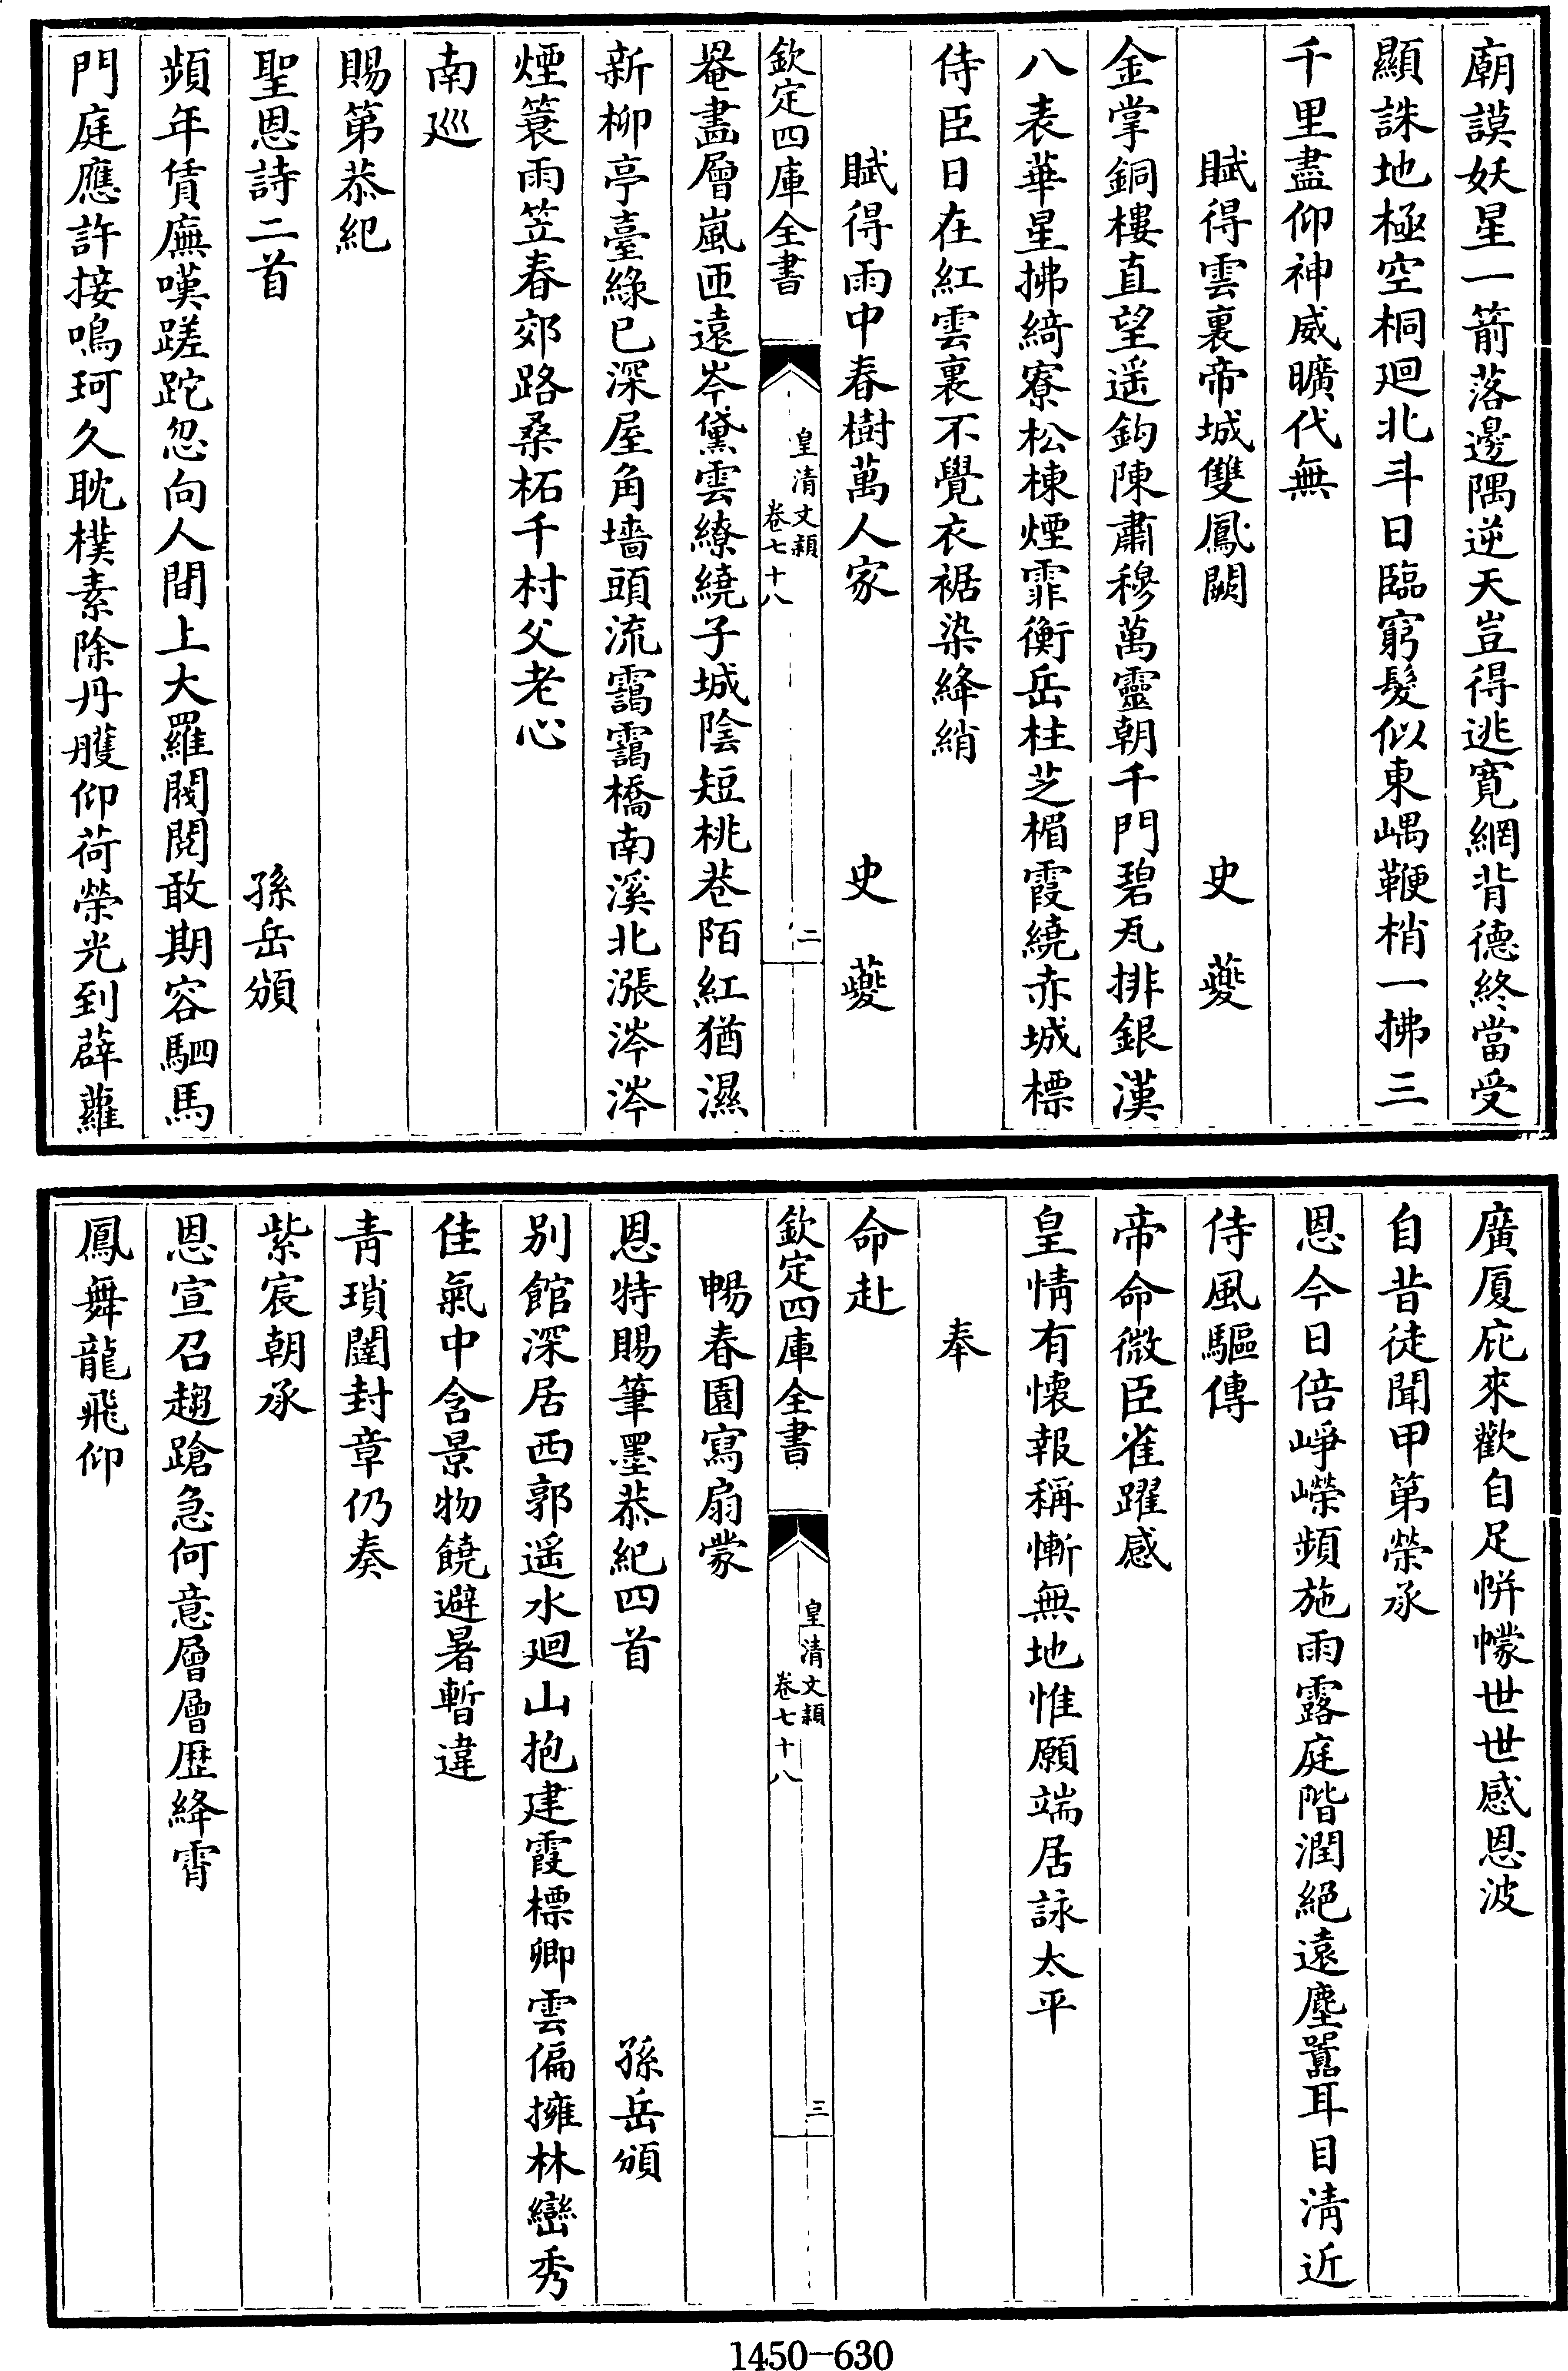 廟謨妖星一箭落邊隅逆天豈得逃寛網背德終當受
顯誅地極空桐廻北斗日臨窮髮似東嵎鞭梢一拂三
千里盡仰神威曠代無
賦得雲裏帝城雙鳳闕 史夔
金掌銅樓直望遥鈎陳肅穆萬靈朝千門碧瓦排銀漢
八表華星拂綺寮松棟煙霏衡岳柱芝楣霞繞赤城標
侍臣日在紅雲裏不覺衣裾染絳綃
賦得雨中春樹萬人家 史夔
欽定四庫全書 皇清文穎 卷七十八 二
罨畫層嵐匝遠岑黛雲繚繞子城陰短桃巷陌紅猶濕
新柳亭臺緑已深屋角墻頭流靄靄橋南溪北漲涔涔
煙簑雨笠春郊路桑柘千村父老心
南廵
賜第恭紀
聖恩詩二首 孫岳頒
頻年賃廡嘆蹉跎忽向人間上大羅閥閱敢期容駟馬
門庭應許接鳴珂久耽樸素除丹雘仰荷榮光到薜蘿
廣厦庇來歡自足帡幪世世感恩波
自昔徒聞甲第榮承
恩今日倍崢嶸頻施雨露庭階潤絕遠塵囂耳目清近
侍風驅傳
帝命微臣雀躍感
皇情有懷報稱慚無地惟願端居詠太平
奉
命赴
欽定四庫全書 皇清文穎 卷七十八 三
暢春園寫扇蒙
恩特賜筆墨恭紀四首 孫岳頒
别館深居西郭遥水廻山抱建霞標卿雲偏擁林巒秀
佳氣中含景物饒避暑暫違
青瑣闥封章仍奏
紫宸朝承
恩宣召趨蹌急何意層層歴絳霄
鳳舞龍飛仰
1450-630